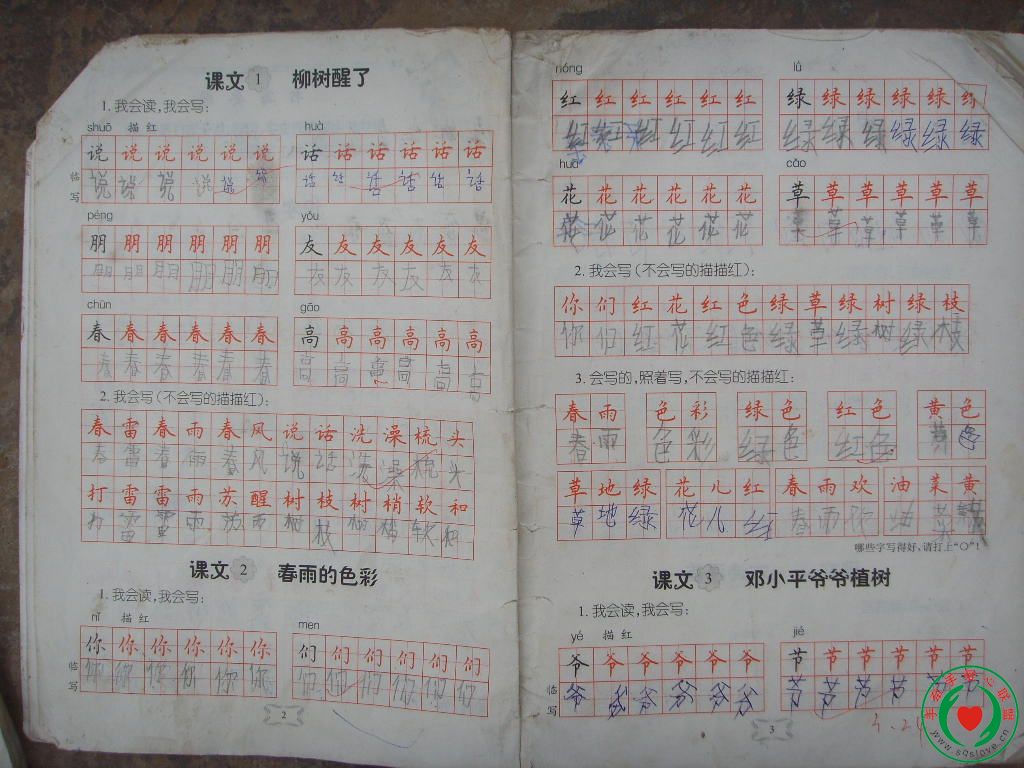 课文 1 柳树醒了
1. 我会读,我会写:
shuō 描 红 huà
说 说 说 说 说 说 话 话 话 话 话 话
临写 说 说 说 说 说 说 话 话 话 话 话 话
péng yǒu
朋 朋 朋 朋 朋 朋 友 友 友 友 友 友
朋 朋 朋 朋 朋 朋 友 友 友 友 友 友
chūn gāo
春 春 春 春 春 春 高 高 高 高 高 高
春 春 春 春 春 春 高 高 高 高 高 高
2. 我会写(不会写的描描红):
春 雷 春 雨 春 风 说 话 洗 澡 梳 头
春 雷 春 雨 春 风 说 话 洗 澡 梳 头
打 雷 雷 雨 苏 醒 树 枝 树 梢 软 和
打 雷 雷 雨 苏 树 枝 树 梢 软 和
课文 2 春雨的色彩
1. 我会读,我会写:
nǐ 描 红 men
你 你 你 你 你 你 们 们 们 们 们 们
临写 你 你 你 你 你 你 们 们 们 们 们 们
2
hóng lǜ
红 红 红 红 红 红 绿 绿 绿 绿 绿 绿
红 红 红 红 红 红 绿 绿 绿 绿 绿 绿
huā cǎo
花 花 花 花 花 花 草 草 草 草 草 草
花 花 花 花 花 花 草 草 草 草 草 草
2. 我会写(不会写的描描红):
你 们 红 花 红 色 绿 草 绿 树 绿 枝
你 们 红 花 红 色 绿 草 绿 树 绿 枝
3. 会写的,照着写,不会写的描描红:
春 雨 色 彩 绿 色 红 色 黄 色
春 雨 色 彩 绿 色 红 色 黄 色
草 地 绿 花 儿 红 春 雨 欢 油 菜 黄
草 地 绿 花 儿 红 春 雨 欢 油 菜 黄
哪些字写得好,请打上“○”!
课文 3 邓小平爷爷植树
1. 我会读,我会写:
yé 描 红 jié
爷 爷 爷 爷 爷 爷 节 节 节 节 节 节
临写 爷 爷 爷 爷 爷 节 节 节 节 节 节
3
www.sqslove.cn